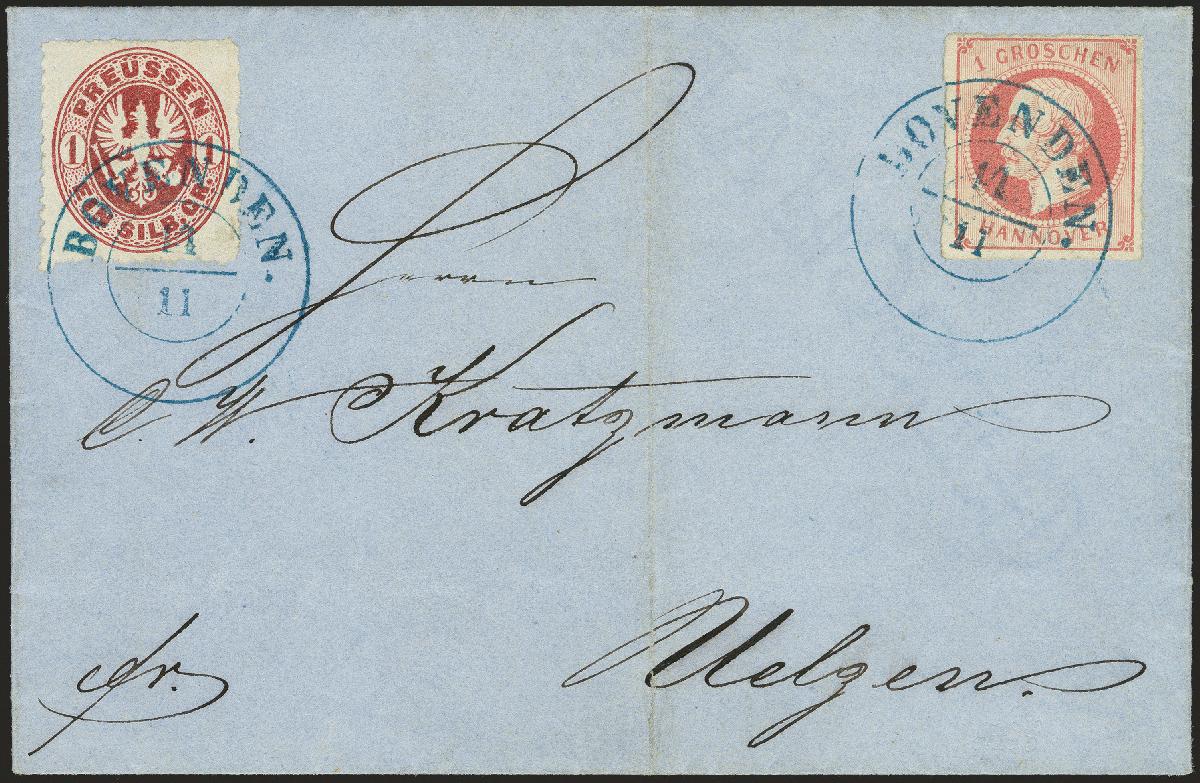 PREUSSEN
1 1
EIN SILB. GR.
BOVENDEN.
17
11
1 GROSCHEN
HANNOVER
BOVENDEN.
17
11
Herrn
C. W. Kratzmann
fr.
Uelzen.